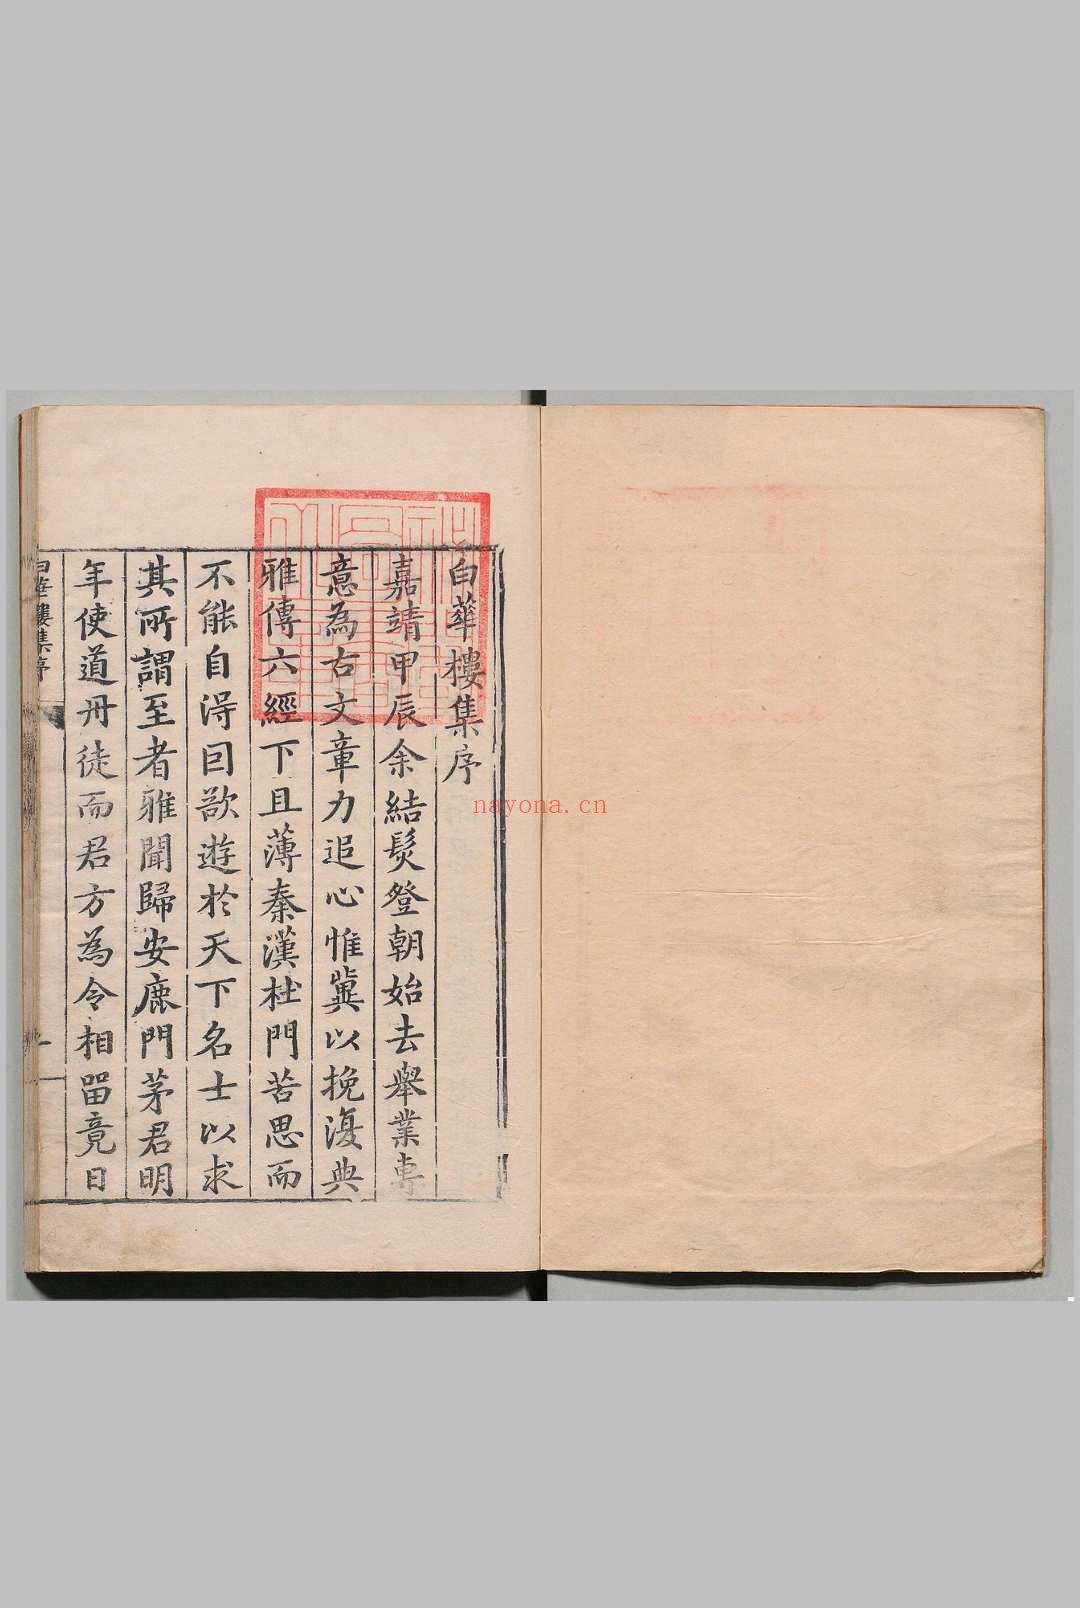 白華樓集序
嘉靖甲辰余結髮登朝始去舉業專
意為古文章力追心惟冀以挽復典
雅傳六經下且薄秦漢杜門苦思而
不能自得囙欲遊於天下名士以求
其所謂至者雅聞歸安鹿門茅君明
年使道丹徒而君方為令相留竟日
白華樓集序
一
nayona.cn